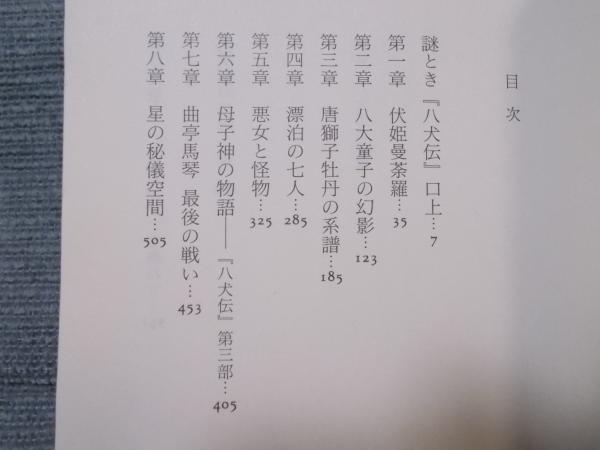 目次
謎とき『八犬伝』口上…7
第一章 伏姫曼荼羅…35
第二章 八大童子の幻影…123
第三章 唐獅子牡丹の系譜…185
第四章 漂泊の七人…285
第五章 悪女と怪物…325
第六章 母子神の物語――『八犬伝』第三部…405
第七章 曲亭馬琴 最後の戦い…453
第八章 星の秘儀空間…505